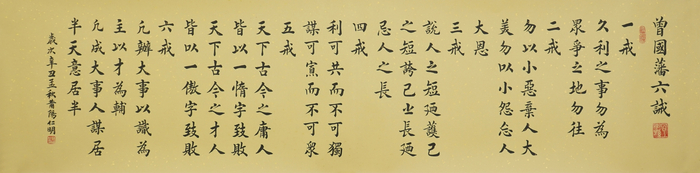 曾國藩六誡
一戒
久利之事勿為
眾爭之地勿往
二戒
勿以小惡棄人大
美勿以小怨忘人
大恩
三戒
說人之短廼護己
之短誇己之長廼
忌人之長
四戒
利可共而不可獨
謀可寡而不可衆
五戒
天下古今之庸人
皆以一惰字致敗
天下古今之才人
皆以一傲字致敗
六戒
凡辦大事以識為
主以才為輔
凡成大事人謀居
半天意居半
歲次辛丑孟秋陽仁明